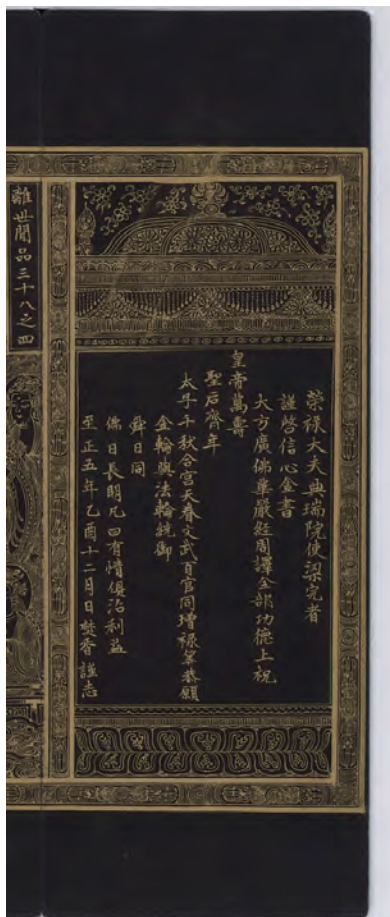 榮祿大夫典瑞院使梁完者
謹啓信心金書
大方廣佛華嚴經周譯全部功德上祝
皇帝萬壽
聖后齊年
太子千秋合宮天眷文武百官同增祿筭恭願
金輪與法輪統御
舜日同
佛日長明凡曰有情俱沾利益
至正五年乙酉十二月日焚香謹志
離世間品三十八之四